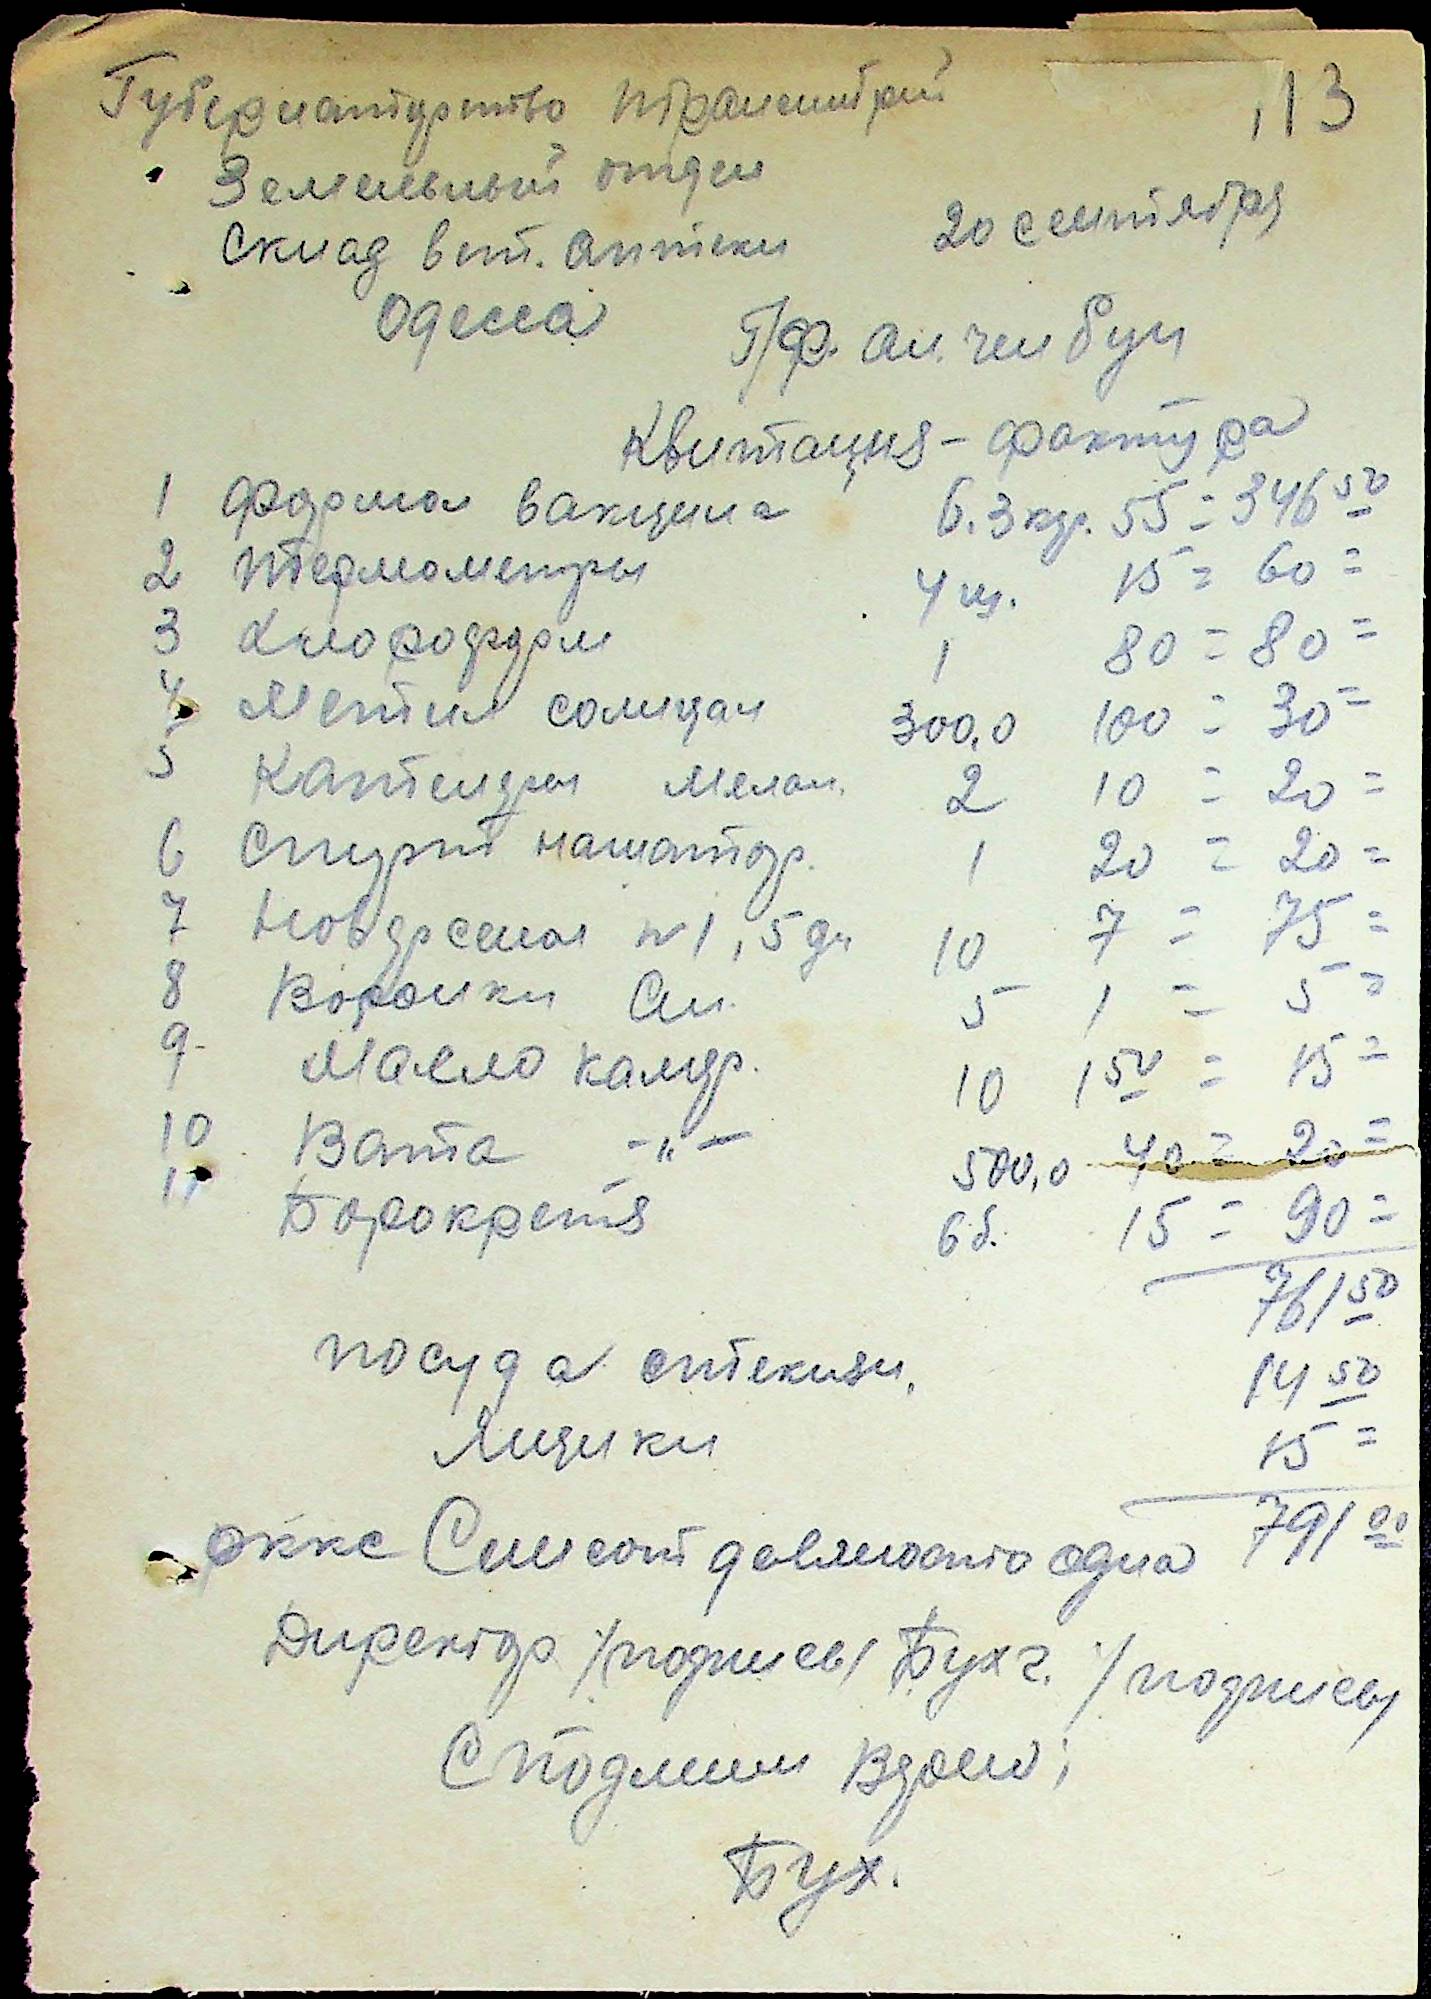 113
Губернаторство Транснистрии
Земельный отдел
Склад вет. аптеки 20 сентября
Одесса
Квитанция - фактура
1 Формол вакцина 6.3 кгр. 55 = 346 50
2 Термометры 4 ш. 15 = 60 =
3 Хлороформ 1 80 = 80 =
4 Метил салицил 300,0 100 = 30 =
5 Катетеры 2 10 = 20 =
6 Спирт нашатыр. 1 20 = 20 =
7 Новарсенол № 1,5 10 7 = 75 =
8 Воронки 5 1 = 5 =
9 Масло камфр. 10 1 50 = 15 =
10 Вата -"- 500,0 40 = 20 =
11 Борокрета 6 б. 15 = 90 =
761 50
посуда стеклян. 14 50
Ящики 15 =
791 00
ркке Семсот девяносто одна
Директор /подпись/ Бухг. /подпись/
С подлин верно;
Бух.